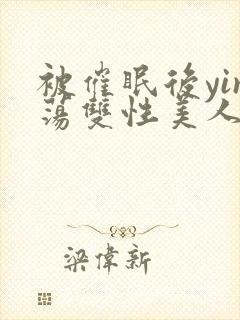 被催眠後yin
蕩雙性美人
梁偉新